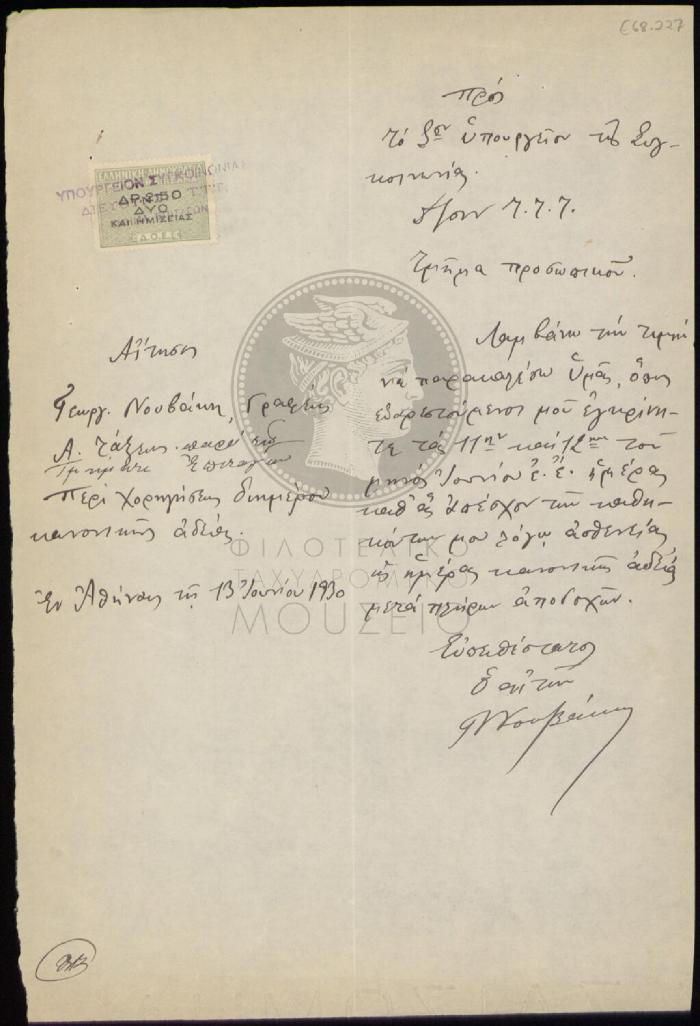 Ε68.227
Πρός
Τό Σον Ὑπουργεῖον τῆς Συγ-
κοινωνίας.
Δ/σιν Τ.Τ.Τ.
Τμῆμα προσωπικοῦ.
ΕΛΛΗΝΙΚΗ ΔΗΜΟΚΡΑΤΙΑ
ΥΠΟΥΡΓΕΙΟΝ ΣΥΓΚΟΙΝΩΝΙΑΣ
ΔΡ. 2.50
ΔΙΕΥΘΥΝΣΙΣ Τ.Τ.Τ.
ΔΥΟ
ΚΑΙ ΗΜΙΣΕΙΑΣ
Αἴτησις
Γεωργ. Νουβάκη, Γραφέως
Α. τάξεως παρά
Τμήματι Ἐπιταγῶν
Περί χορηγήσεως διημέρου
κανονικῆς ἀδείας.
Ἐν Ἀθήναις τῇ 13 Ἰουνίου 1930
Λαμβάνω τήν τιμήν
νά παρακαλέσω Ὑμᾶς, ὅπως
εὐαρεστούμενοι μοῦ ἐγκρίνη-
τε τάς 11ην καί 12ην τοῦ
μηνός Ἰουνίου ἐ.ἔ. ἡμέρας
καθ' ἅς ἀπέσχον τῶν καθη-
κόντων μου λόγῳ ἀσθενείας
ὡς ἡμέρας κανονικῆς ἀδείας
μετά πλήρων ἀποδοχῶν.
Εὐπειθέστατος
Ὁ αἰτῶν
ΓΝουβάκης
ΦΙΛΟΤΕΛΙΚΟ
ΤΑΧΥΔΡΟΜΙΚΟ
ΜΟΥΣΕΙΟ